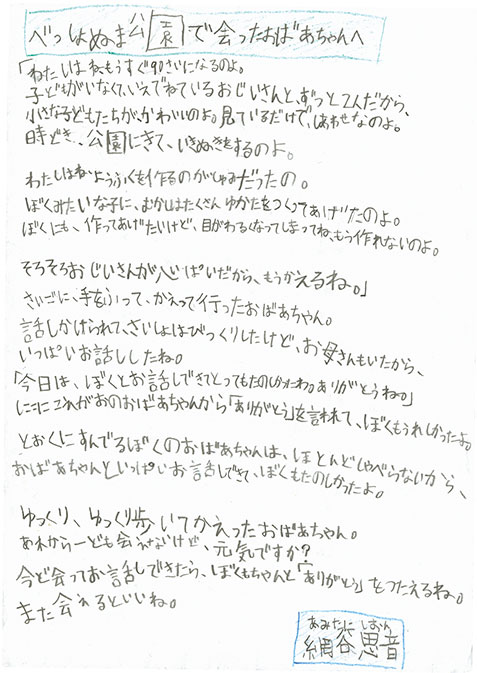 べっしょぬま公園で会ったおばあちゃんへ
「わたしはねもうすぐ90さいになるのよ。
子どもがいなくて、いえでねているおじいさんと、ずっと2人だから、
小さな子どもたちが、かわいいのよ。見ているだけで、しあわせなのよ。
時どき、公園にきて、いきぬきをするのよ。
わたしはねようふくを作るのがしゅみだったの。
ぼくみたいな子に、むかしはたくさんゆかたをつくってあげたのよ。
ぼくにも、作ってあげたいけど、目がわるくなってしまってね、もう作れないのよ。
そろそろおじいさんが心ぱいだから、もうかえるね。」
さいごに、手をふって、かえって行ったおばあちゃん。
話しかけられて、さいしょはびっくりしたけど、お母さんもいたから、
いっぱいお話ししたね。
「今日は、ぼくとお話しできてとってもたのしかったわ。ありがとうね。」
にこにこえがおのおばあちゃんから「ありがとう」を言われて、ぼくもうれしかったよ。
とおくにすんでるぼくのおばあちゃんは、ほとんどしゃべらないから、
おばあちゃんといっぱいお話しできて、ぼくもたのしかったよ。
ゆっくり、ゆっくり歩いてかえったおばあちゃん。
あれから一ども会えないけど、元気ですか?
今ど会ってお話しできたら、ぼくもちゃんと「ありがとう」をつたえるね。
また会えるといいね。
あみたに しおん
網谷思音